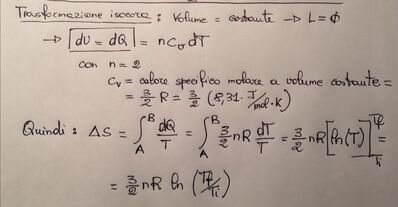 Trasformazione isocora: Volume = costante → L = ϕ
→ dU = dQ = n Cv dT
con n = 2
Cv = calore specifico molare a volume costante =
= 3/2 R = 3/2 (8,31 · J/mol·K)
Quindi: ΔS = ∫_A^B dQ/T = ∫_A^B 3/2 nR dT/T = 3/2 nR [ln(T)]_Ti^Tf =
= 3/2 nR ln (Tf/Ti)